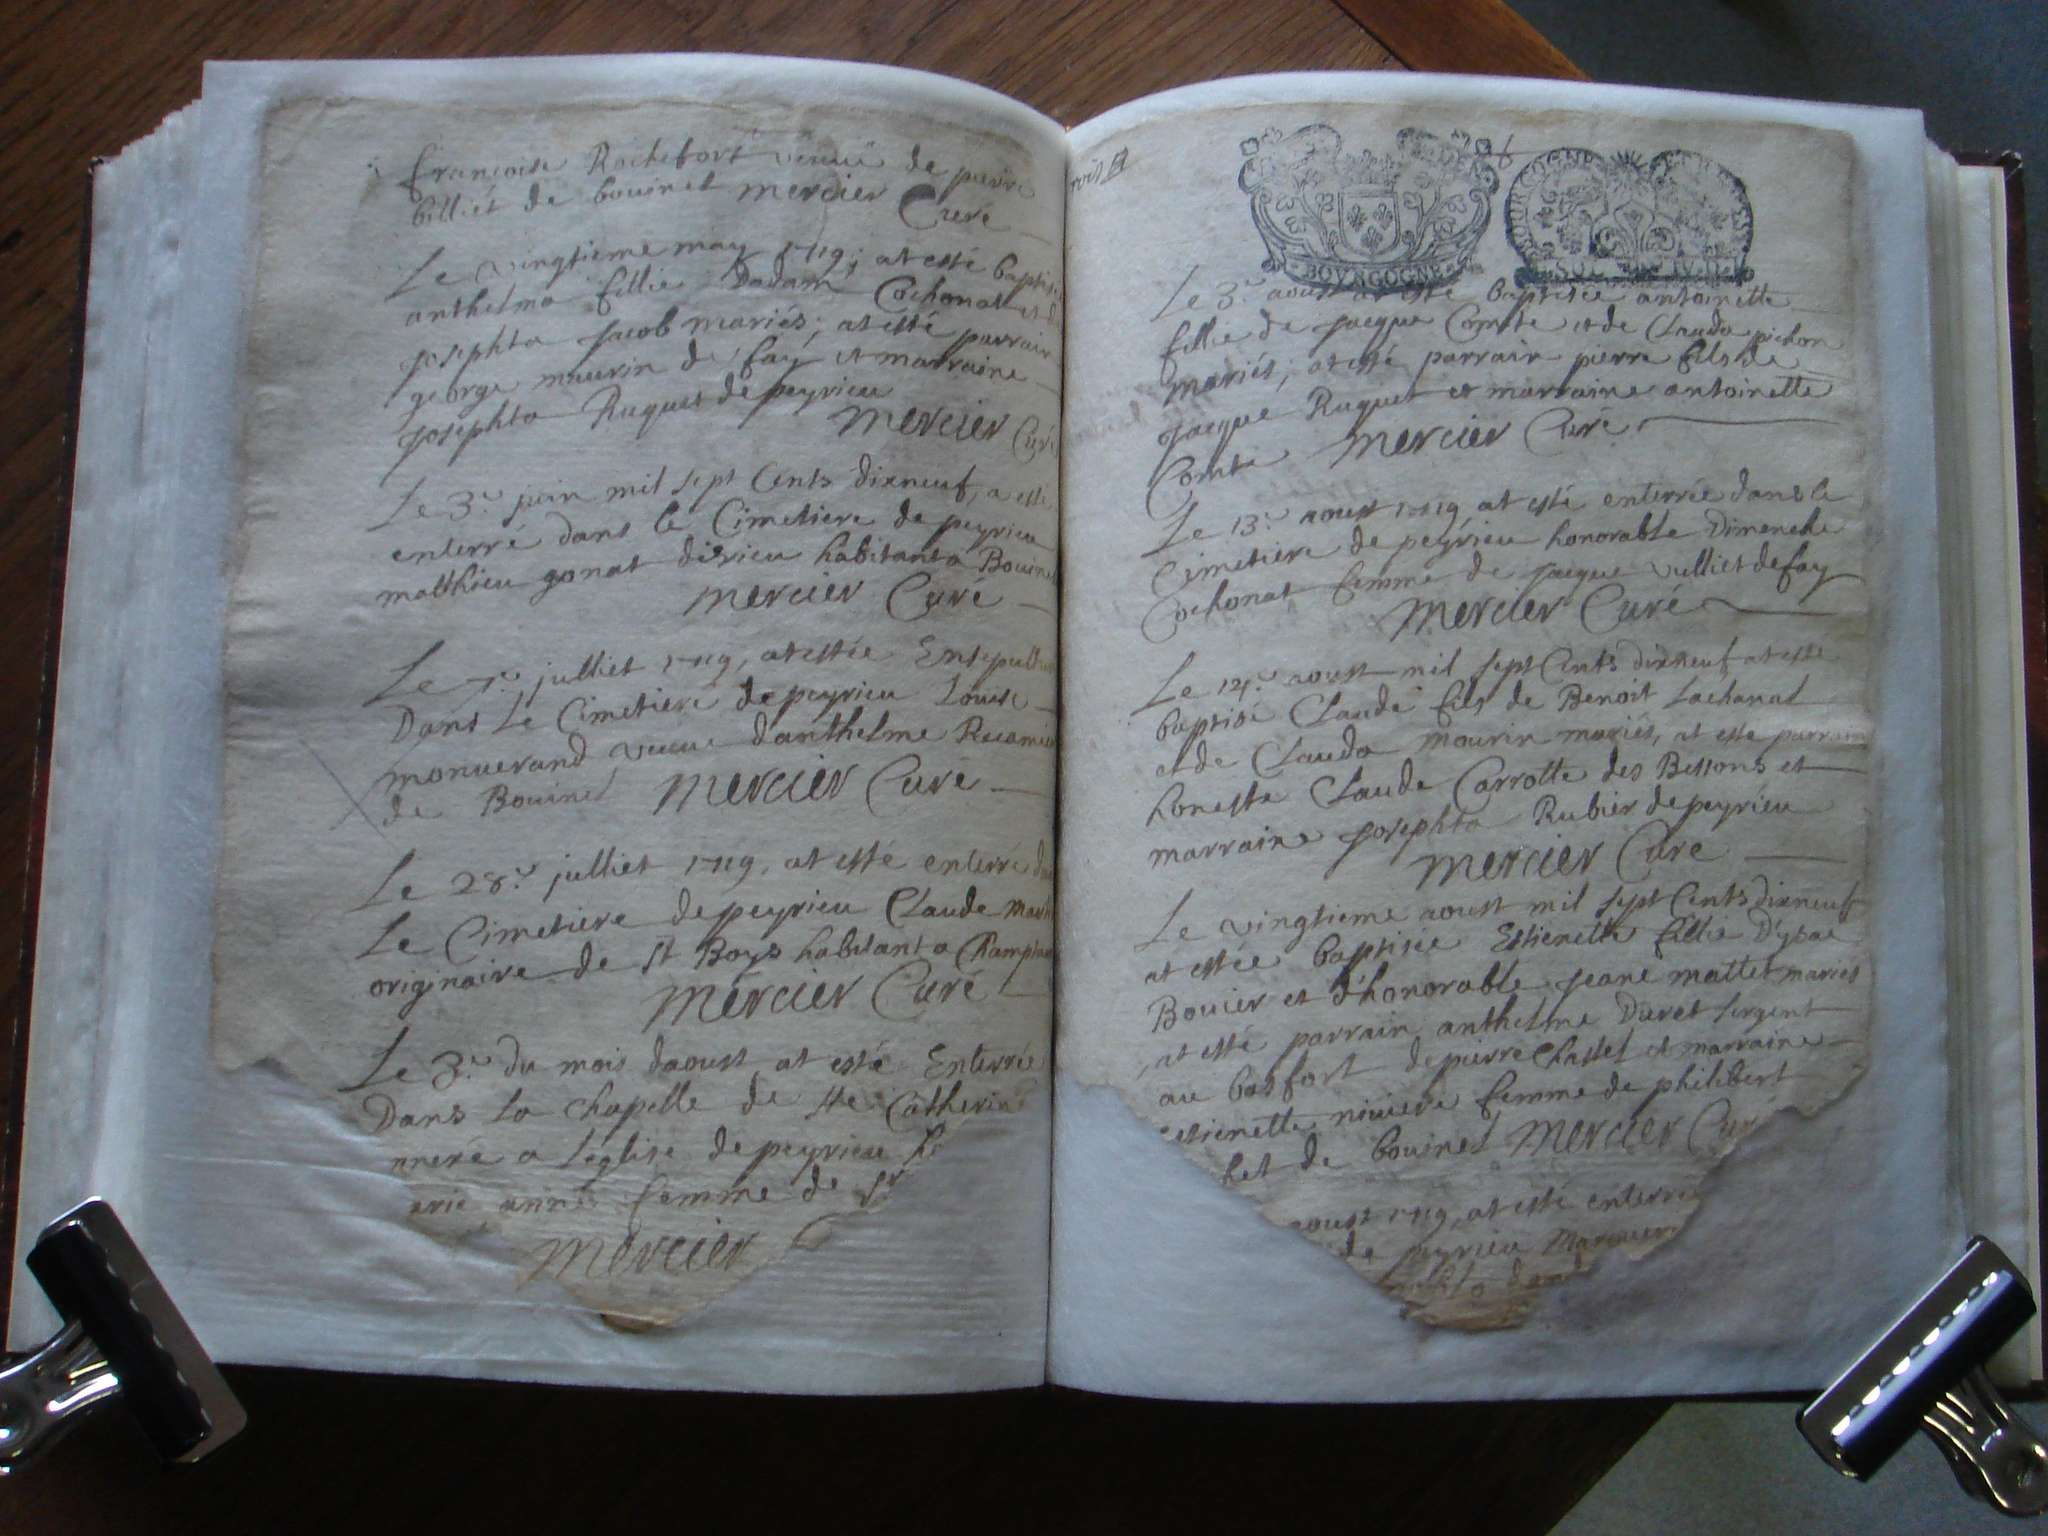 françoise Rochefort veuuë de pierre
billiet de bouinel mercier Curé
Le vingtieme may 1719, at esté baptisé
anthelma fillie Dadam Cochonat et de
Josephta Jacob mariés, at esté parrain
george mourin de fay et marraine
Josephta Ruquet de peyrieu
mercier Curé
Le 3e juin mil sept Cents dixneuf, a esté
enterré dans le Cimetiere de peyrieu
matthieu gonat disieu habitant a Bouinel
mercier Curé
Le 7e julliet 1719, at estée Ensepultu
Dans Le Cimetiere de peyrieu Louise
monuerand veuue danthelme Recamier
de Bouinel mercier Curé
Le 28e julliet 1719, at esté enterré da
Le Cimetiere de peyrieu Claude mar
originaire de St Boys habitant a Champta
mercier Curé
Le 3e du mois daoust, at esté Enterrée
Dans La chapelle de Ste Catherine
nnexé a leglise de peyrieu
arie anne femme de Sr
mercier
BOVRGOGNE
Le 3e aoust at esté baptisée antoinette
fillie de Jacque Comte et de Clauda pichon
mariés, at esté parrain pierre fils de
Jacque Ruquet et marraine antoinette
Comte mercier Curé
Le 13e aoust 1719 at esté enterrée dans le
Cimetiere de peyrieu honorable Dimenche
Cochonat femme de Jacque Vulliet de fay
mercier Curé
Le 14e aoust mil sept Cents dixneuf at esté
baptisé Claude fils de Benoit Lachanal
et de Clauda mourin mariés, at esté parrain
honeste Claude Carrotte des Bessons et
marraine Josephta Rubier de peyrieu
mercier Curé
Le vingtieme aoust mil sept Cents dixneuf
at estée baptisée Estienette fillie D'ysac
Bouier et d'honorable Jeane mallet mariés
at esté parrain anthelme Duret sergent
au basfort de pierre Chastel et marraine
estienette niuiere femme de philibert
het de bouinel mercier Curé
aoust 1719 at esté enterré
de peyrieu